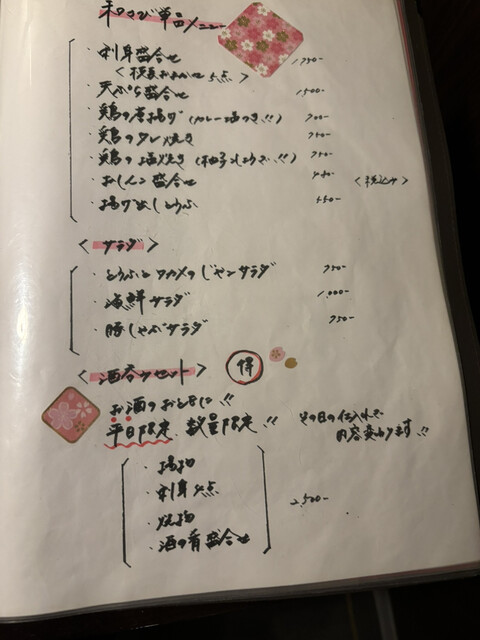 和さび単品メニュー
・刺身盛合せ 1,750-
<板長おまかせ 5点>
・天ぷら盛合せ 1500-
・鶏の唐揚げ (カレー塩つき!!) 700-
・鶏のタレ焼き 750-
・鶏の塩焼き (柚子こしょうで!!) 750-
・おしんこ盛合せ <税込み>
・揚げ出しとうふ 550-
<サラダ>
・とうふとワカメのじゃこサラダ 750-
・海鮮サラダ 1,000-
・豚しゃぶサラダ 950-
<酒呑みセット> 得
お酒のおともに!!
平日限定 数量限定!!
その日の仕入れで
内容変わります!!
・揚物
・刺身4点
・焼物
・酒の肴盛合せ
2,500-